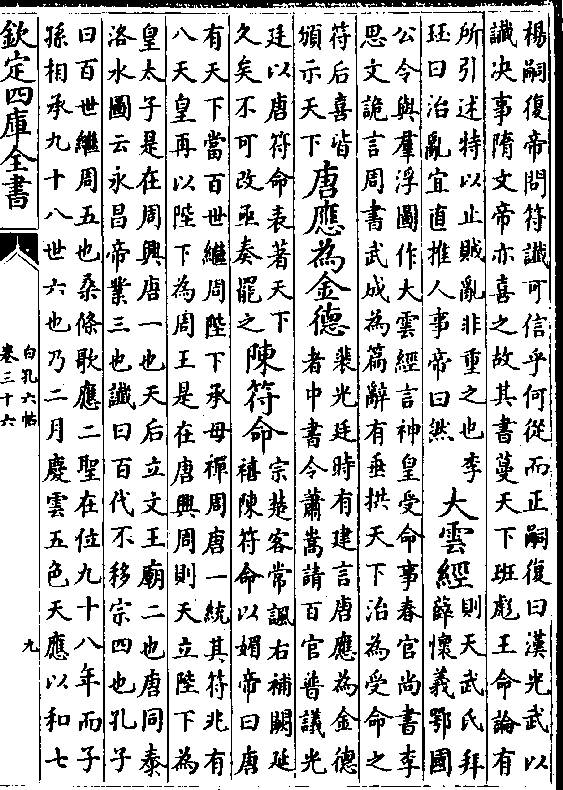 楊嗣復帝問符讖可信乎何從而正嗣復曰漢光武以
讖决事隋文帝亦喜之故其書蔓天下班彪王命論有
所引述特以止賊亂非重之也李
珏曰治亂宜直推人事帝曰然
大雲經
則天武氏拜
薛懷義鄂國
公令與羣浮圖作大雲經言神皇受命事春官尚書李
思文詭言周書武成為篇辭有垂拱天下治為受命之
符后喜皆
頒示天下
唐應為金德
裴光廷時有建言唐應為金德
者中書令蕭嵩請百官普議光
廷以唐符命表著天下
久矣不可改亟奏罷之
陳符命
宗楚客常諷右補闕延
禧陳符命以媚帝曰唐
有天下當百世繼周陛下承母禪周唐一統其符兆有
八天皇再以陛下為周王是在唐興周則天立陛下為
皇太子是在周興唐一也天后立文王廟二也唐同泰
洛水圖云永昌帝業三也讖曰百代不移宗四也孔子
曰百世繼周五也桑條歌應二聖在位九十八年而子
孫相承九十八世六也乃二月慶雲五色天應以和七
欽定四庫全書
白孔六帖
卷三十六
九